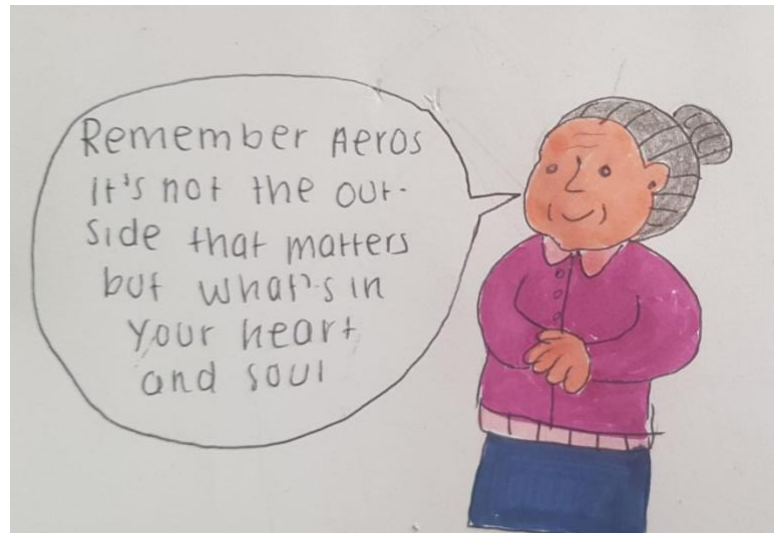 Remember Aeros
it's not the out-
side that matters
but what's in
your heart
and soul